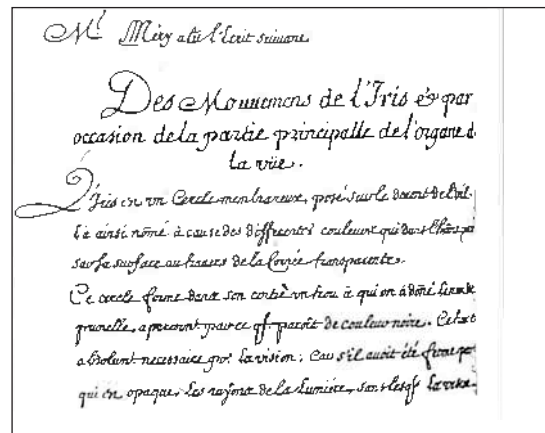 Mr. Mery a lû l'Ecrit suivant
Des Mouuemens de l'Iris & par
occasion de la partie principalle de l'organe d
la vüe.
L'Iris est un Cercle membraneux, posé sur le devant de l'œil
ainsi nômé à cause des differentes couleurs qui dans l'hôme
sur sa surface au trauers de la Cornée transparente.
Ce cercle forme dans son centre un trou à qui on a doné le nom de
prunelle, parce qu'il paroît de couleur noire. Cet
absolument necessaire pour la vision; Car s'il avoit été fermé
qui est opaque, les rayons de la Lumiere, sans lesqls la vision